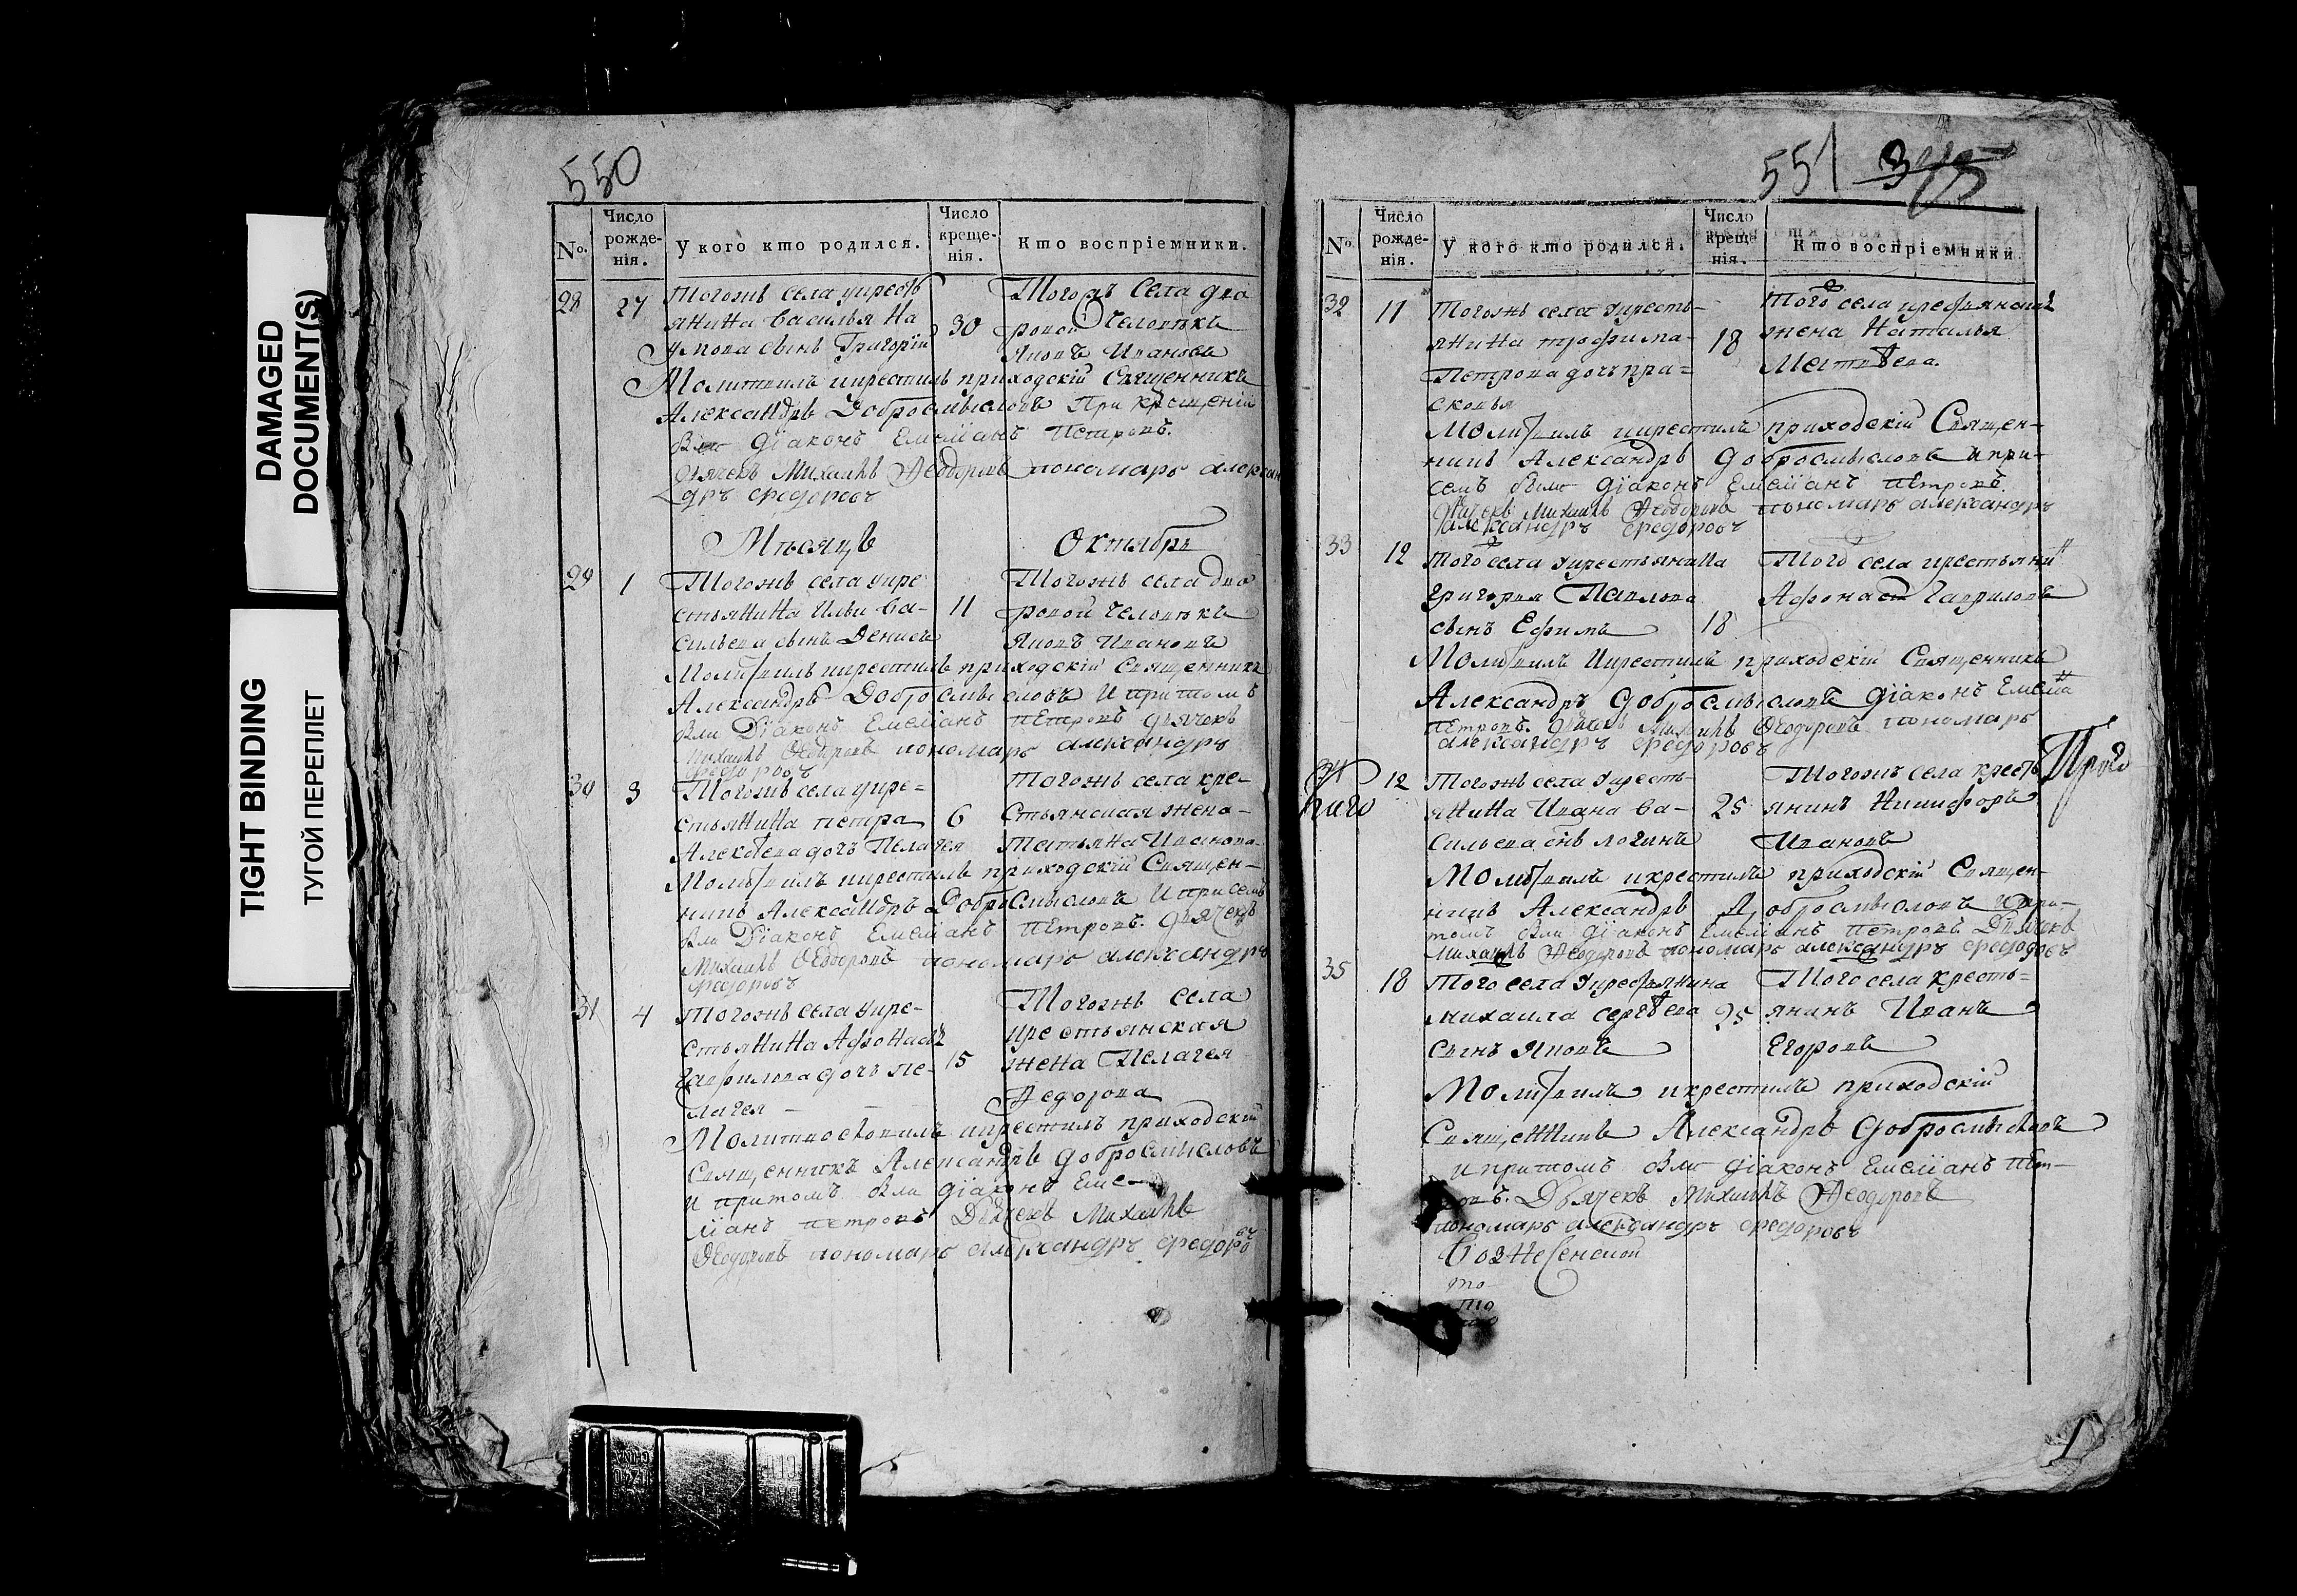 DAMAGED
DOCUMENT(S)
TIGHT BINDING
ТУГОЙ ПЕРЕПЛЕТ
550
№.
Число рожденія.
У кого кто родился.
Число крещенія.
Кто воспріемники.
28 27 Тогожъ села кресть
янина Василья На
умова сынъ Григорій
30
Тогожъ Села дво
ровой Человѣкъ
Яковъ Ивановъ
Молитвилъ икрестилъ приходскій Священникъ
Александръ Добросмысловъ При крещеніи
діаконъ Емеліанъ Петровъ.
Дьячекъ Михаилъ Ѳеодоровъ пономарь алексан
дръ федоровъ
Мѣсяцъ Октябрь
29 1 Тогожъ села кре
стьянина Ильи Ва-
сильева сынъ Денисъ
11
Тогожъ села дво
ровой человѣкъ
Яковъ Ивановъ
Молитвилъ икрестилъ приходскій Священникъ
Александръ Добросмысловъ И притомъ
были Діаконъ Емеліанъ Петровъ дьячекъ
Михаилъ Ѳеодоровъ пономарь александръ
федоровъ
30 3 Тогожъ села кре=
стьянина петра
Алексѣева дочь Пелагея
6
тогожъ села кре-
стьянская жена-
Татьяна Иванова
Молитвилъ икрестилъ приходскій Священ-
никъ Александръ Добросмысловъ И при семъ
были Діаконъ Емеліанъ Петровъ. дьячекъ
Михаилъ Ѳеодоровъ пономарь александръ
федоровъ
31 4 Тогожъ села кре-
стьянина Афонасья
Гаврилова дочь пе-
лагея -
15
Тогожъ Села
крестьянская
жена Пелагея
Ѳедорова
Молитвословилъ икрестилъ приходскій
Священникъ Александръ добросмысловъ
И притомъ были діаконъ Еме-
ліанъ петровъ Дьячекъ Михаилъ
Ѳеодоровъ пономарь александръ федоровъ
551
№.
Число рожденія.
У кого кто родился.
Число креще нія.
Кто воспріемники.
32 11 Тогожъ села кресть-
янина трофима-
Петрова дочь пра=
сковья
18
того села крестьянская
жена Наталья
Матвѣева.
Молитвилъ икрестилъ приходскій Священ-
никъ Александръ добросмысловъ И при-
семъ были діаконъ Емеліанъ Петровъ
Дьячекъ Михаилъ Ѳеодоровъ пономарь александръ
александръ федоровъ
33 12 Того села крестьянина
Григорья Павлова
сынъ Ефимъ
18
Того села крестьяни
Афонасі Гавриловъ
Молитвилъ Икрестилъ приходскій Священникъ
Александръ добросмысловъ діаконъ Емеліа
Петровъ. дьячекъ Михаилъ Ѳеодоровъ пономарь
александръ федоровъ
34 12 Тогожъ села кресть-
янина Ивана Ва-
сильева снъ логинъ
25
Тогожъ села кресть
янинъ Никифоръ
Ивановъ
Молитвилъ икрестилъ приходскій Священ-
никъ Александръ Добросмысловъ И при-
томъ были діаконъ Емеліанъ петровъ Дьячекъ
Михаилъ Ѳеодоровъ пономарь александръ федоровъ
35 18 Того села крестьянина
михаила сергѣева
Сынъ Яковъ
25
Того села кресть-
янинъ Иванъ
Егоровъ
Молитвилъ икрестилъ приходскій
Священникъ Александръ добросмысловъ
и притомъ были діаконъ Емеліанъ Пет-
ровъ. Дьячекъ Михаилъ Ѳеодоровъ
пономарь александръ федоровъ
Вознесенской
то
то